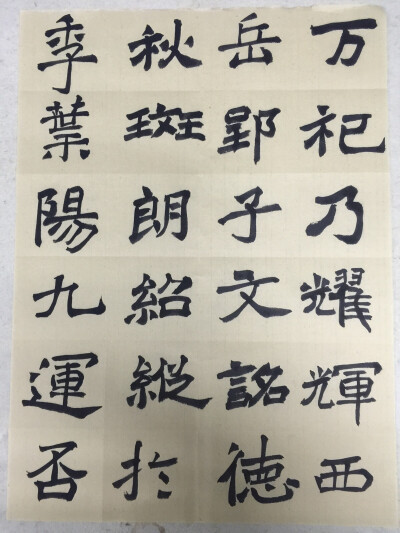 万祀乃耀輝西
岳郢子文詺德
秋斑朗紹縱於
季葉陽九運否